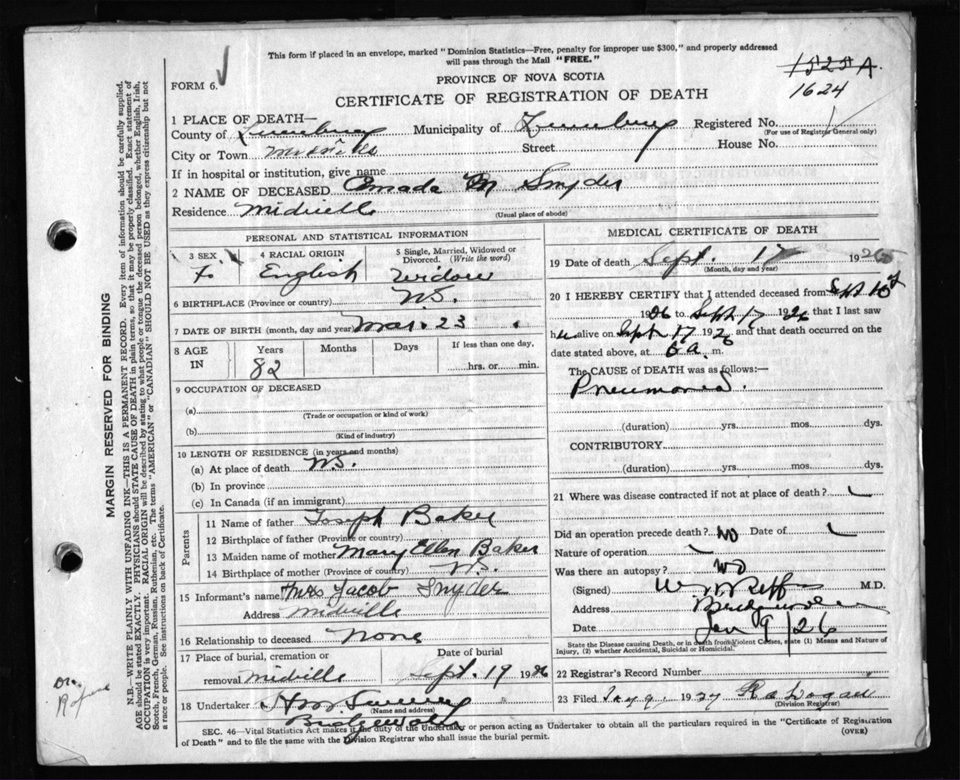 This form if placed in an envelope, marked "Dominion Statistics—Free, penalty for improper use $300," and properly addressed
will pass through the Mail "FREE."
FORM 6.
PROVINCE OF NOVA SCOTIA
1525 A.
1624
CERTIFICATE OF REGISTRATION OF DEATH
1 PLACE OF DEATH—
County of Lunenburg Municipality of Lunenburg Registered No.
(For use of Registrar General only)
City or Town Street House No.
If in hospital or institution, give name
2 NAME OF DECEASED Amada M Snyder
Residence Midville
(Usual place of abode)
PERSONAL AND STATISTICAL INFORMATION
3 SEX 4 RACIAL ORIGIN 5 Single, Married, Widowed or Divorced. (Write the word)
F English Widow
6 BIRTHPLACE (Province or country) N.S.
7 DATE OF BIRTH (month, day and year) Mar. 23
8 AGE IN Years Months Days If less than one day,
82 hrs. or min.
9 OCCUPATION OF DECEASED
(a)
(Trade or occupation or kind of work)
(b)
(Kind of industry)
10 LENGTH OF RESIDENCE (in years and months)
(a) At place of death N.S.
(b) In province
(c) In Canada (if an immigrant)
Parents
11 Name of father Joseph Baker
12 Birthplace of father (Province or country)
13 Maiden name of mother Mary Ellen Baker
14 Birthplace of mother (Province of country) N.S.
15 Informant's name Mrs Jacob Snyder
Address Midville
16 Relationship to deceased None
17 Place of burial, cremation or Date of burial
removal Midville Sept. 19 1926
18 Undertaker
(Name and address)
Bridgewater
MEDICAL CERTIFICATE OF DEATH
19 Date of death Sept. 17 1926
(Month, day and year)
20 I HEREBY CERTIFY that I attended deceased from Sept 10
1926 to Sept 17 1926 that I last saw
her alive on Sept 17 1926 and that death occurred on
date stated above, at 6 a. m.
The CAUSE of DEATH was as follows:—
Pneumonia.
(duration) yrs. mos. dys.
CONTRIBUTORY
(duration) yrs. mos. dys.
21 Where was disease contracted if not at place of death?
Did an operation precede death? No Date of
Nature of operation
Was there an autopsy? No
(Signed) M.D.
Address Bridgewater
Date Jan 9/26
State the Disease causing Death, or in death from Violent Causes, state (1) Means and Nature of
Injury, (2) whether Accidental, Suicidal or Homicidal.
22 Registrar's Record Number
23 Filed Jany 9. 1927
(Division Registrar)
SEC. 46—Vital Statistics Act makes it the duty of the Undertaker or person acting as Undertaker to obtain all the particulars required in the "Certificate of Registration
of Death" and to file the same with the Division Registrar who shall issue the burial permit.
(OVER)
MARGIN RESERVED FOR BINDING
N.B.—WRITE PLAINLY WITH UNFADING INK—THIS IS A PERMANENT RECORD. Every item of information should be carefully supplied.
AGE should be stated EXACTLY. PHYSICIANS should STATE CAUSE OF DEATH in plain terms, so that it may be properly classified. Exact statement of
OCCUPATION is very important. RACIAL ORIGIN will be described by stating to what people or tongue the deceased person belonged, whether English, Irish,
Scotch, French, German, Russian, Ruthenian, etc. The terms "AMERICAN" or "CANADIAN" SHOULD NOT BE USED as they express citizenship but not
a race or people. See instructions on back of Certificate.